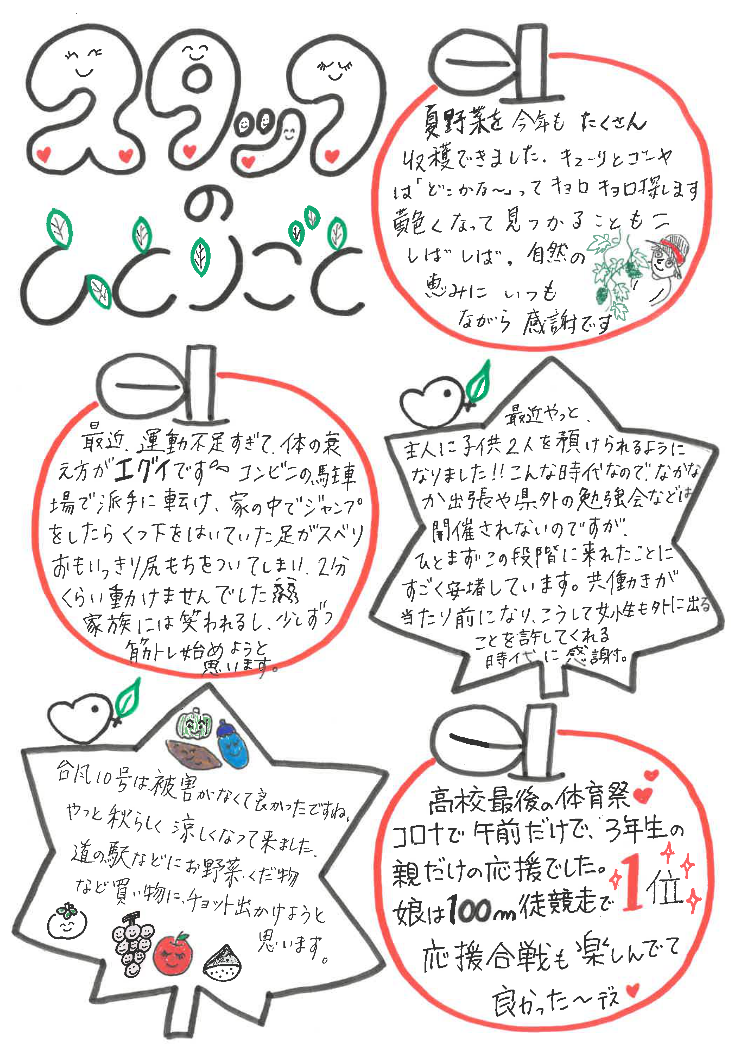 スタッフ
の
ひとりごと
夏野菜を今年もたくさん
収穫できました。キューリとゴーヤ
は「どこかな〜」ってキョロキョロ探します
黄色くなって見つかることも
しばしば。自然の
恵みにいつも
ながら感謝です
最近、運動不足すぎて、体の衰
え方がエグイです コンビニの駐車
場で派手に転け、家の中でジャンプ
をしたらくつ下をはいていた足がスベリ
おもいっきり尻もちをついてしまい、2分
くらい動けませんでした
家族には笑われるし、少しずつ
筋トレ始めようと
思います。
最近やっと、
主人に子供2人を預けられるように
なりました!!こんな時代なので、なかな
か出張や県外の勉強会などは
開催されないのですが、
ひとまずこの段階に来れたことに
すごく安堵しています。共働きが
当たり前になり、こうして女性も外に出る
ことを許してくれる
時代に感謝。
台風10号は被害がなくて良かったですね。
やっと秋らしく涼しくなって来ました。
道の駅などにお野菜、くだ物
など買い物に、チョット出かけようと
思います。
高校最後の体育祭
コロナで午前だけで、3年生の
親だけの応援でした。
娘は100m徒競走で1位
応援合戦も楽しんでて
良かった〜デス